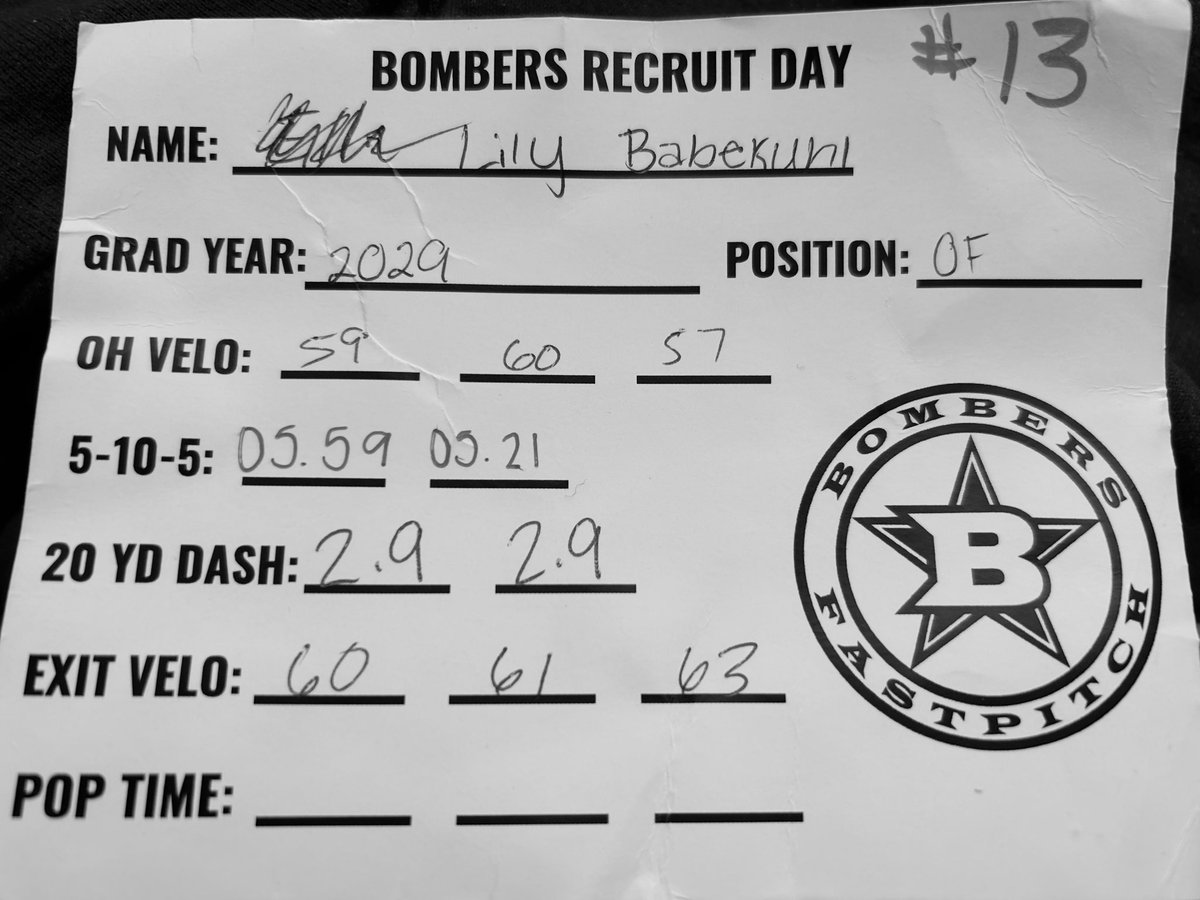 BOMBERS RECRUIT DAY #13
NAME: Lily Babekuhl
GRAD YEAR: 2029 POSITION: OF
OH VELO: 59 60 57
5-10-5: 05.59 05.21
20 YD DASH: 2.9 2.9
EXIT VELO: 60 61 63
POP TIME:
BOMBERS
B
FASTPITCH